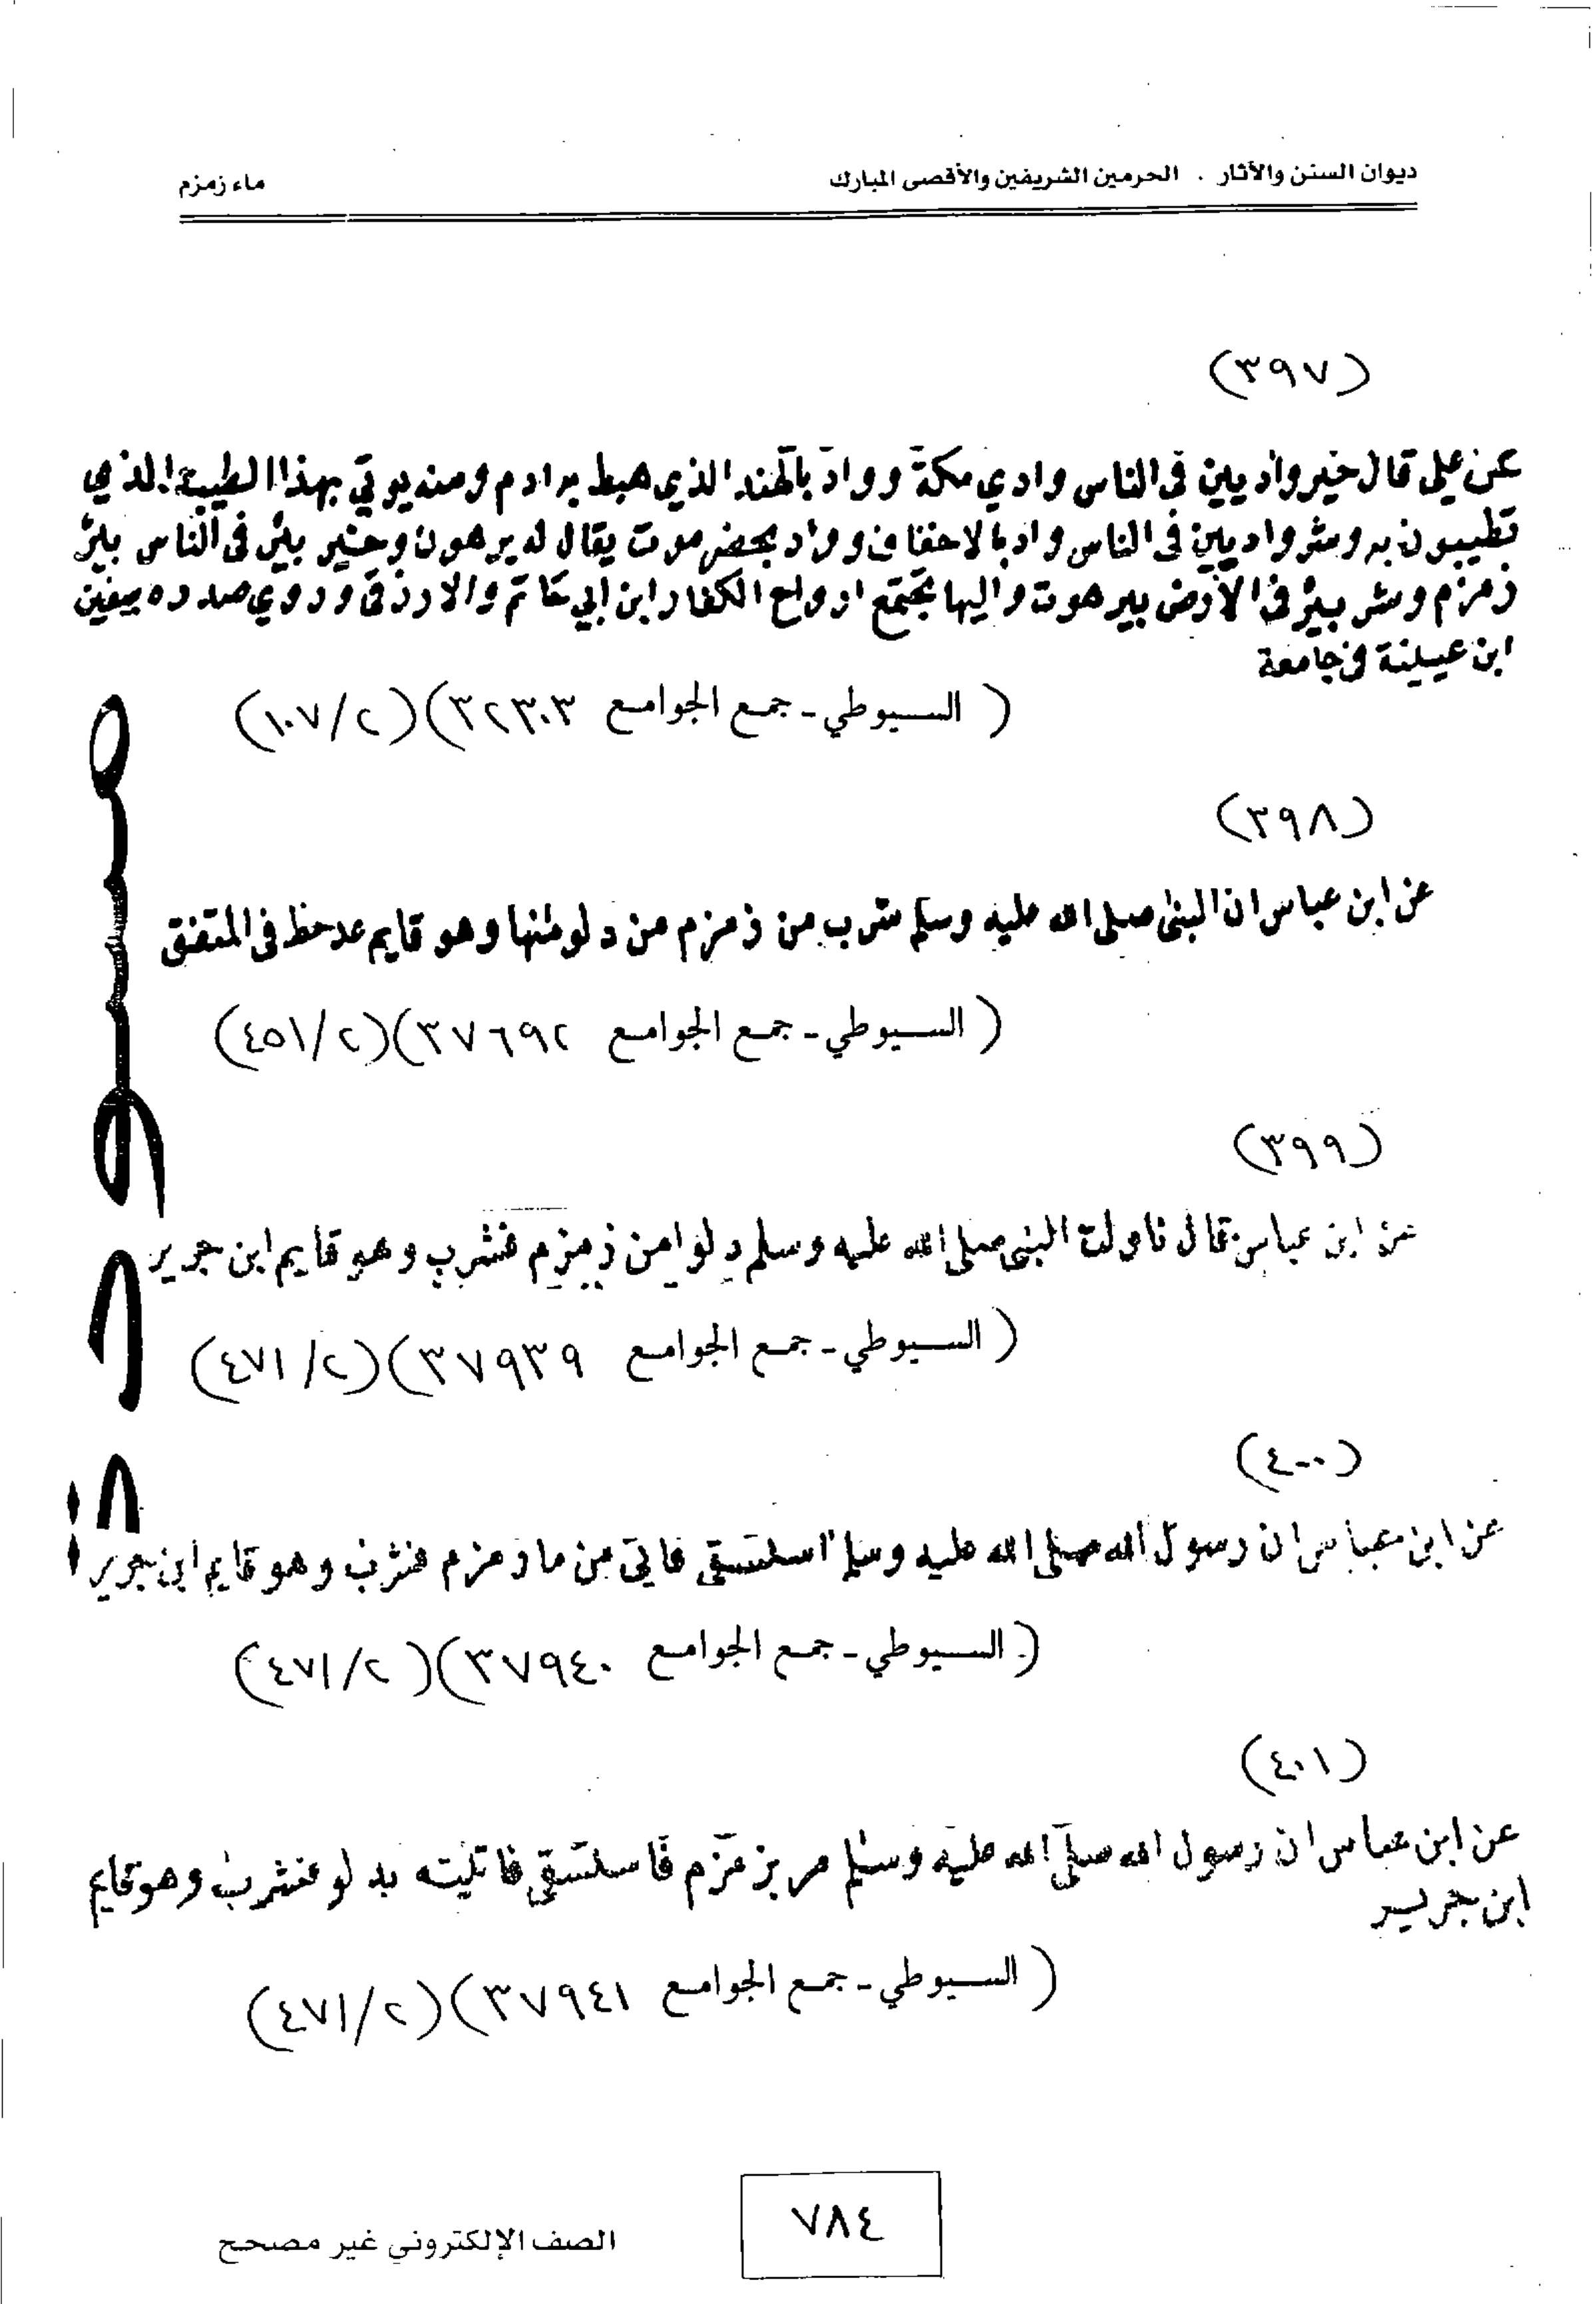 ديوان السنن والآثار . الحرمين الشريفين والأقصى المبارك
ماء زمزم
(٣٩٧)
عن علي قال خير واديين في الناس وادي مكة وواد بالهند الذي هبط به ادم ومنه يوتي بهذا الطيب الذي
تطيبون به وشر واديين في الناس واد بالاحقاف وواد بحضرموت يقال له برهوت وخير بئر في الناس بئر
زمزم وشر بير في الارض بير هوت واليها تجتمع ارواح الكفار ابن ابي حاتم والازرقي وروي صدره سفين
ابن عيينة في جامعة
( السيوطي - جمع الجوامع ٣٢٣٠٣) (٢/١٠٧)
(٣٩٨)
عن ابن عباس ان النبي صلى الله عليه وسلم شرب من زمزم من دلو منها وهو قايم عد خط في المتفق
( السيوطي - جمع الجوامع ٣٧٦٩٢) (٢/٤٥١)
(٣٩٩)
عن ابن عباس قال ناولت النبي صلى الله عليه وسلم دلوا من زمزم فشرب وهو قايم ابن جرير
( السيوطي - جمع الجوامع ٣٧٩٣٩) (٢/٤٧١)
(٤٠٠)
عن ابن عباس ان رسول الله صلى الله عليه وسلم استسقى فاتى من ما زمزم فشرب وهو قايم ابن جرير
( السيوطي - جمع الجوامع ٣٧٩٤٠) (٢/٤٧١)
(٤٠١)
عن ابن عباس ان رسول الله صلى الله عليه وسلم مر بزمزم فاستسقى فاتيته بدلو فشرب وهو قايم
ابن جرير
( السيوطي - جمع الجوامع ٣٧٩٤١) (٢/٤٧١)
٧٨٤
الصف الإلكتروني غير مصحح